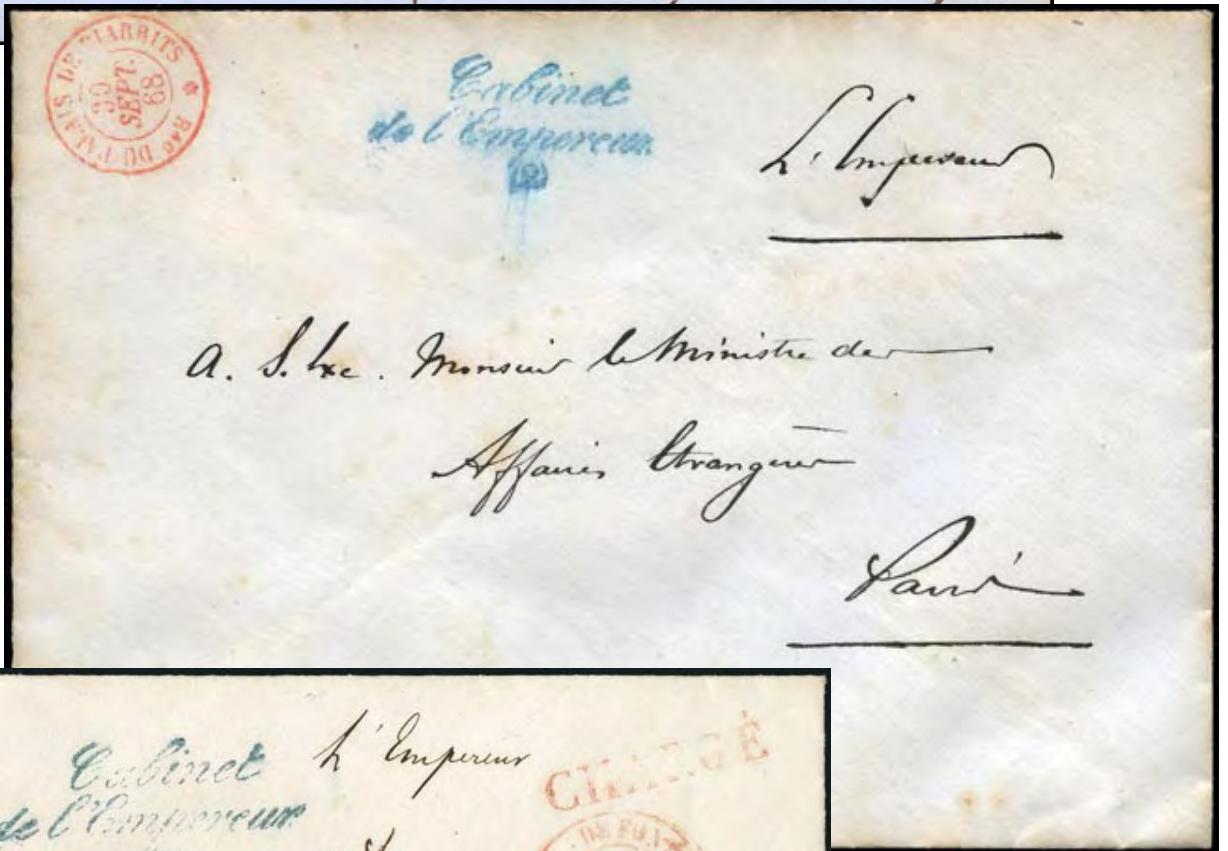 Rau DU PALAIS DE BIARRITS
30
SEPT.
68
Cabinet
de l'Empereur
L'Empereur
A. S. Exc. Monsieur le Ministre des
Affaires Etrangères
Paris
Cabinet
de l'Empereur
L'Empereur
CHARGÉ